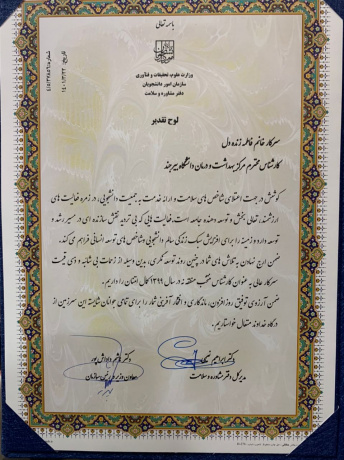 باسمه تعالی
شماره: ۴۱/۴۲/۲۸۵۶
تاریخ: ۱۴۰۱/۳/۲۲
وزارت علوم، تحقیقات و فناوری
سازمان امور دانشجویان
دفتر مشاوره و سلامت
لوح تقدیر
سرکار خانم فاطمه زنده دل
کارشناس محترم مرکز بهداشت و درمان دانشگاه بیرجند
کوشش در جهت اعتلای شاخص های سلامت و ارائه خدمت به جمعیت دانشجویی، در زمره فعالیت های
ارزشمند، تعالی بخش و توسعه دهنده جامعه است. فعالیت هایی که بی تردید نقش سازنده ای در مسیر رشد و
توسعه دارد و زمینه را برای افزایش سبک زندگی سالم دانشجویی و شاخص های توسعه انسانی فراهم می کند.
ضمن ارج نهادن به تلاش های شما در چنین روند توسعه نگری، بدین وسیله از زحمات بی شائبه و ذی قیمت
سرکار عالی به عنوان کارشناس منتخب منطقه نه در سال ۱۳۹۹ کمال امتنان را داریم.
ضمن آرزوی توفیق روزافزون، ماندگاری و افتخار آفرینی شما را برای تمامی جوانان شایسته این سرزمین از
درگاه خداوند متعال خواستاریم.
دکتر ابراهیم
مدیرکل دفتر مشاوره و سلامت
دکتر هاشم داداش پور
معاون وزیر و رئیس سازمان